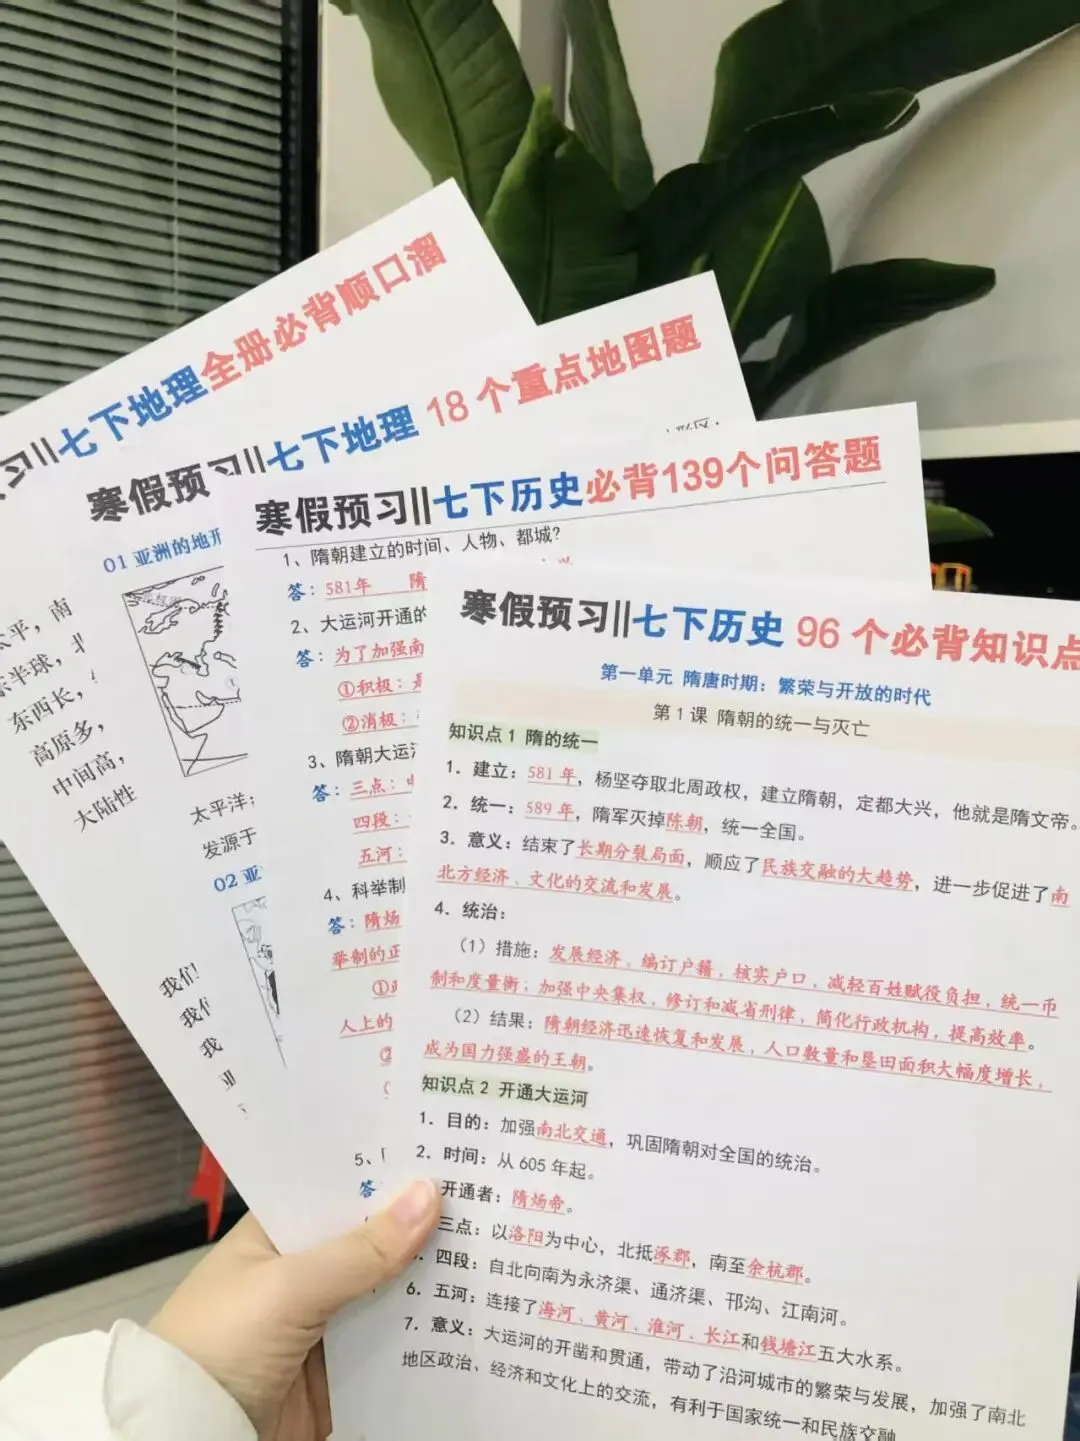 习||七下地理全册必背顺口溜
太平，南
东半球，北
东西长，
高原多，
中间高，
大陆性
我们
我们
我
亚
寒假预习||七下地理 18个重点地图题
01 亚洲的地形
太平洋；
发源于
02 亚
寒假预习||七下历史必背139个问答题
1、隋朝建立的时间、人物、都城？
答：581年 隋
2、大运河开通的
答：为了加强南
①积极：
②消极：
3、隋朝大运河
答：三点：
四段：
五河：
4、科举制
答：隋炀
举制的正
①
人上的
②
5、
答
寒假预习||七下历史 96个必背知识点
第一单元 隋唐时期：繁荣与开放的时代
第1课 隋朝的统一与灭亡
知识点1 隋的统一
1．建立：581年，杨坚夺取北周政权，建立隋朝，定都大兴，他就是隋文帝。
2．统一：589年，隋军灭掉陈朝，统一全国。
3．意义：结束了长期分裂局面，顺应了民族交融的大趋势，进一步促进了南
北方经济、文化的交流和发展。
4．统治：
（1）措施：发展经济，编订户籍，核实户口，减轻百姓赋役负担，统一币
制和度量衡；加强中央集权，修订和减省刑律，简化行政机构，提高效率。
（2）结果：隋朝经济迅速恢复和发展，人口数量和垦田面积大幅度增长，
成为国力强盛的王朝。
知识点2 开通大运河
1．目的：加强南北交通，巩固隋朝对全国的统治。
2．时间：从605年起。
开通者：隋炀帝。
三点：以洛阳为中心，北抵涿郡，南至余杭郡。
四段：自北向南为永济渠、通济渠、邗沟、江南河。
6．五河：连接了海河、黄河、淮河、长江和钱塘江五大水系。
7．意义：大运河的开凿和贯通，带动了沿河城市的繁荣与发展，加强了南北
地区政治、经济和文化上的交流，有利于国家统一和民族交融